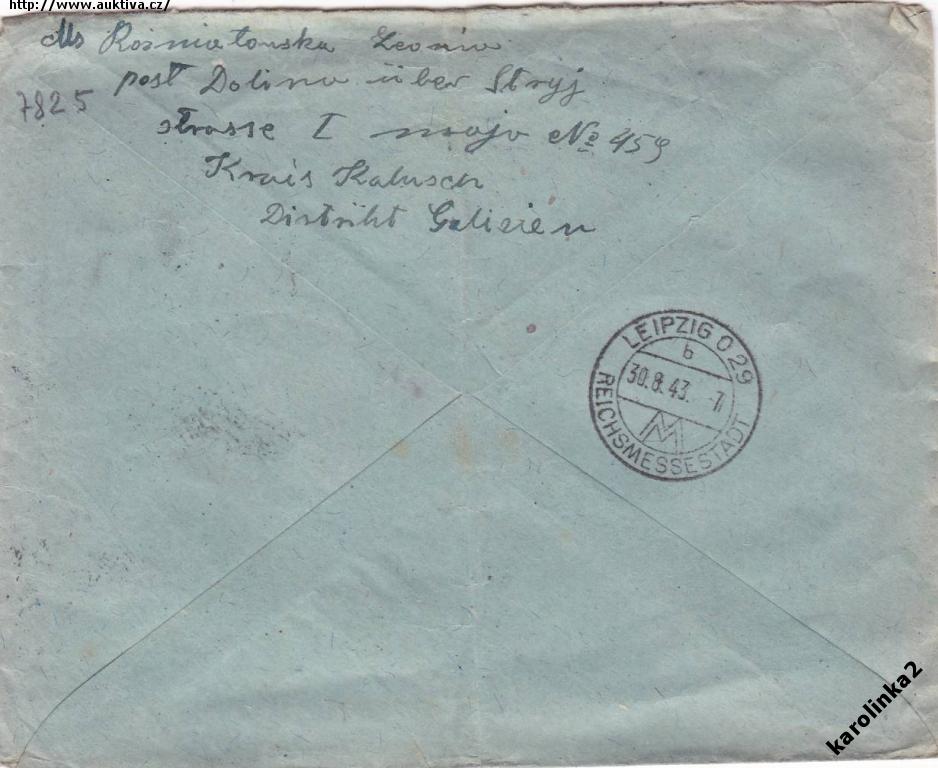 http://www.auktiva.cz/
Ms Rożniatowska Leonia
post Dolina über Stryj
7825
strasse I majo № 459
Krais Kalusch
Distrikt Galizien
LEIPZIG O 29
b
30.8.43. -7
M
REICHSMESSESTADT
karolinka2